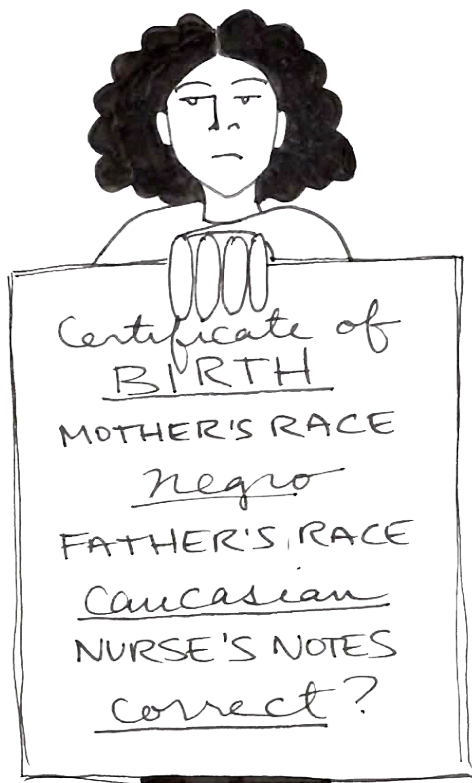 Certificate of
BIRTH
MOTHER'S RACE
negro
FATHER'S RACE
caucasian
NURSE'S NOTES
correct?